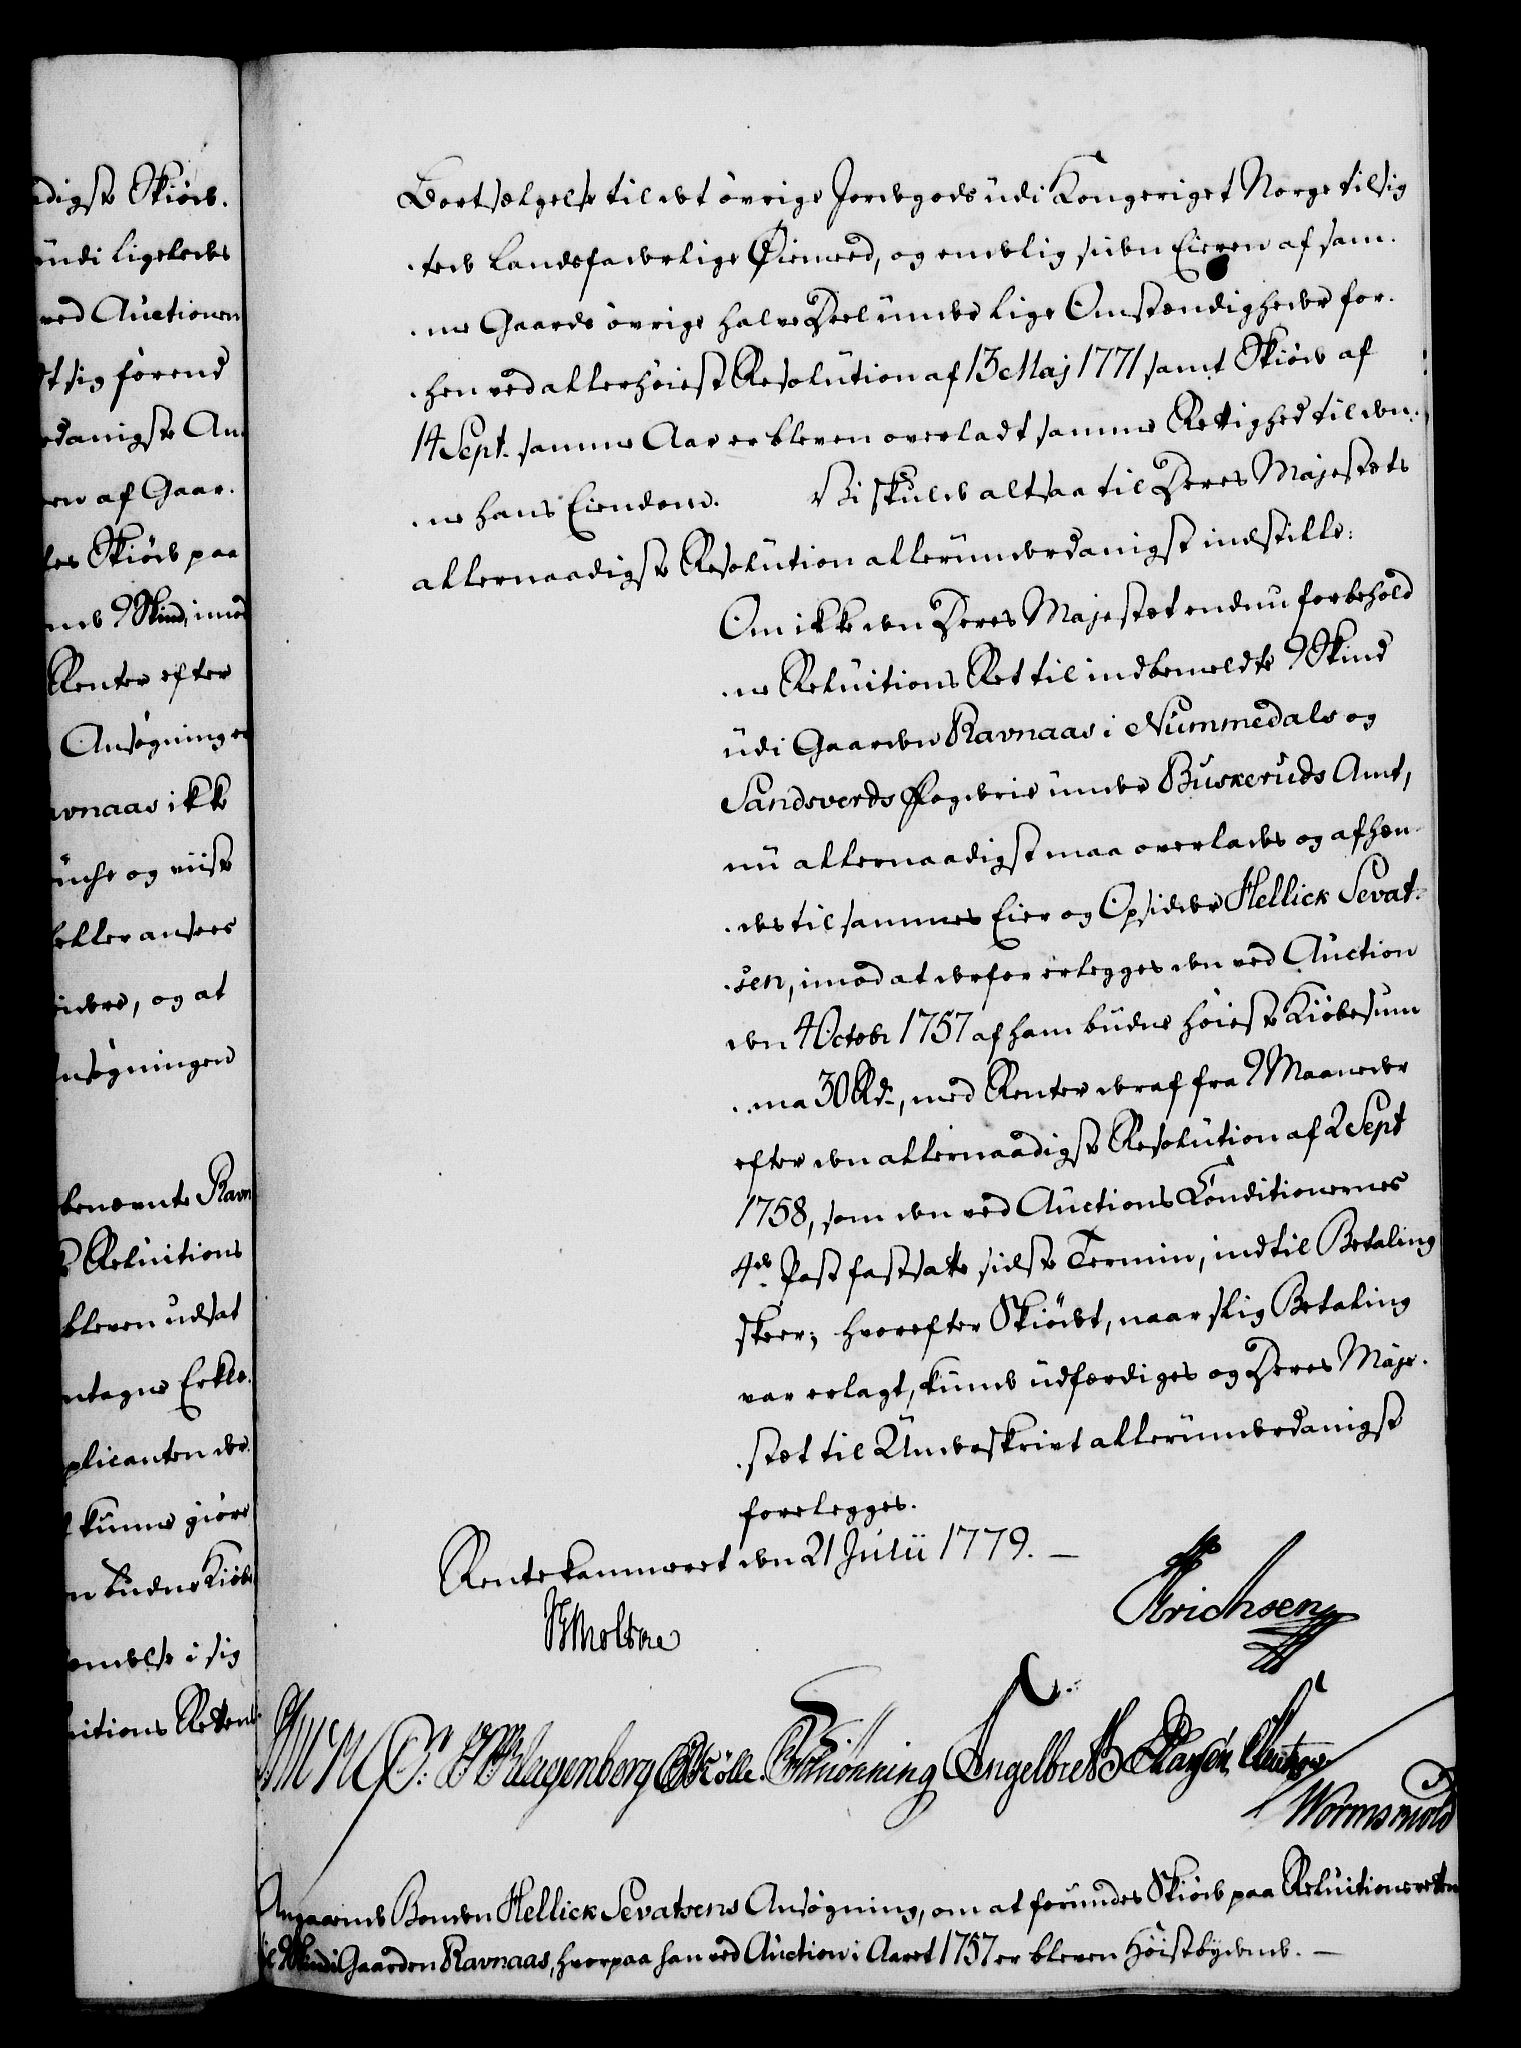 digste Skiöde.
ündi ligeledes
ved Auctionen
sig förend
danigste An
en af Gaar.
Skiöde paa
9 Skind, imod
Renter efter
Ansøgningen
vnaas ikke
og viist
eller ansees
, og at
nsøgningen
benævnte Ravn
Relüitions
bleven udsat
ntagne Erklæ.
plicanten der.
kunne giöre
n budne Kiöbe
i sig
itions Retten
Bortsælgelse til det övrige Jordegods üdi Kongeriget Norge tilsig
.tede Landsfaderlige Øiemeed, og endelig siden Eieren af sam.
.me Gaards övrige halve Deel ünder lige Omstændigheder for.
.hen ved allerhöieste Resolution af 13 Maj 1771 samt Skiöde af
14 Sept. samme Aar er bleven overladt samme Rettighed til den.
.ne hans Eiendom. Vi skulde altsaa til Deres Majestæts
allernaadigste Resolution alleründerdanigst indstille:
Om ikke den Deres Majestæt endnu forbehold
.ne Relüitions Ret til indbemeldte 9 Skind
üdi Gaarden Ravnaas i Nummedals og
Sandsverds Fogderie ünder Buskeruds Amt,
nü allernaadigst maa overlades og afhæn.
.des til sammes Eier og Opsidder Hellick Sevat.
.sen, imod at derfor erlegges den ved Auction
den 4 Octobr 1757 af ham budne höieste Kiöbesum
.ma 30 Rd., med Renter deraf fra 9 Maaneder
efter den allernaadigste Resolution af 2 Sept
1758, som den ved Auctions Conditionernes
4de Post fastsatte sidste Termin, indtil Betaling
skeer; hvorefter Skiödet, naar slig Betaling
var erlagt, kunde üdfærdiges og Deres Maje.
.stæt til Underskrivt alleründerdanigst
forelegges.
Rentekammeret den 21 Julii 1779. —
Moltke
Erichsen
Klagenberg Kölle. Schiönning Engelbreth
Wormskiold
Angaaende Bonden Hellick Sevatsens Ansøgning, om at forundes Skiöde paa Relüitionsretten
til 9 Skind i Gaarden Ravnaas, hvorpaa han ved Auction i Aaret 1757 er bleven Höistbydende. —